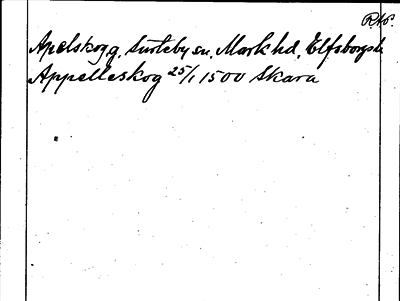 R.A.P.
Apelskog g. Surteby sn. Mark hd. Elfsborgs l.
Appelleskog 25/1 1500 Skara